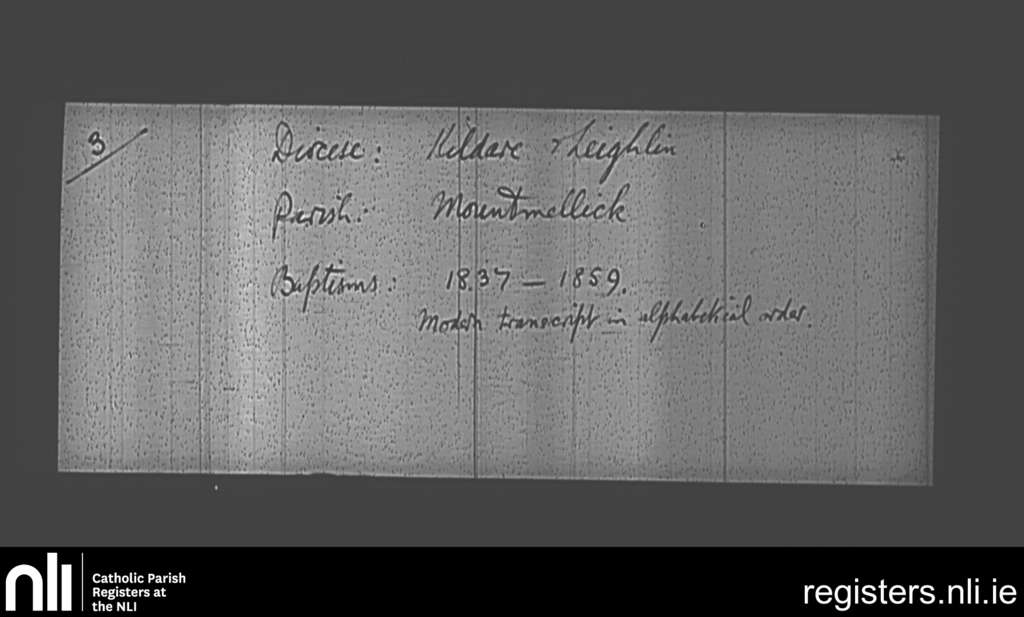 3
Diocese: Kildare & Leighlin
Parish: Mountmellick
Baptisms: 1837 — 1859.
Modern transcript in alphabetical order.
nli
Catholic Parish
Registers at
the NLI
registers.nli.ie